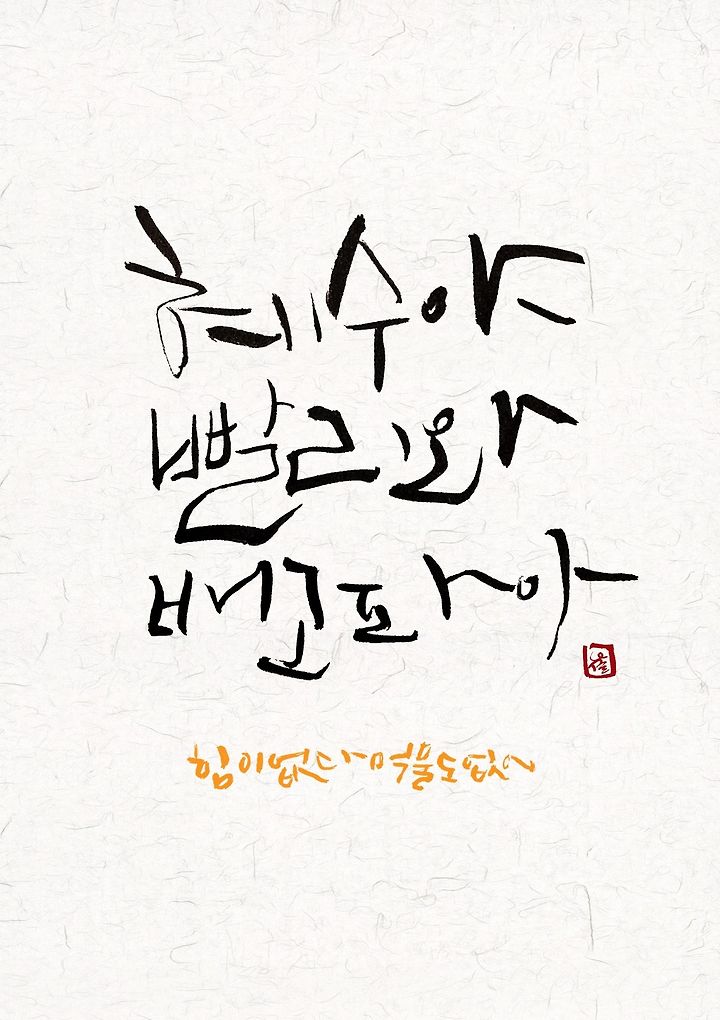 혜수야
빨리와
배고파아
힘이없다 먹물도없어